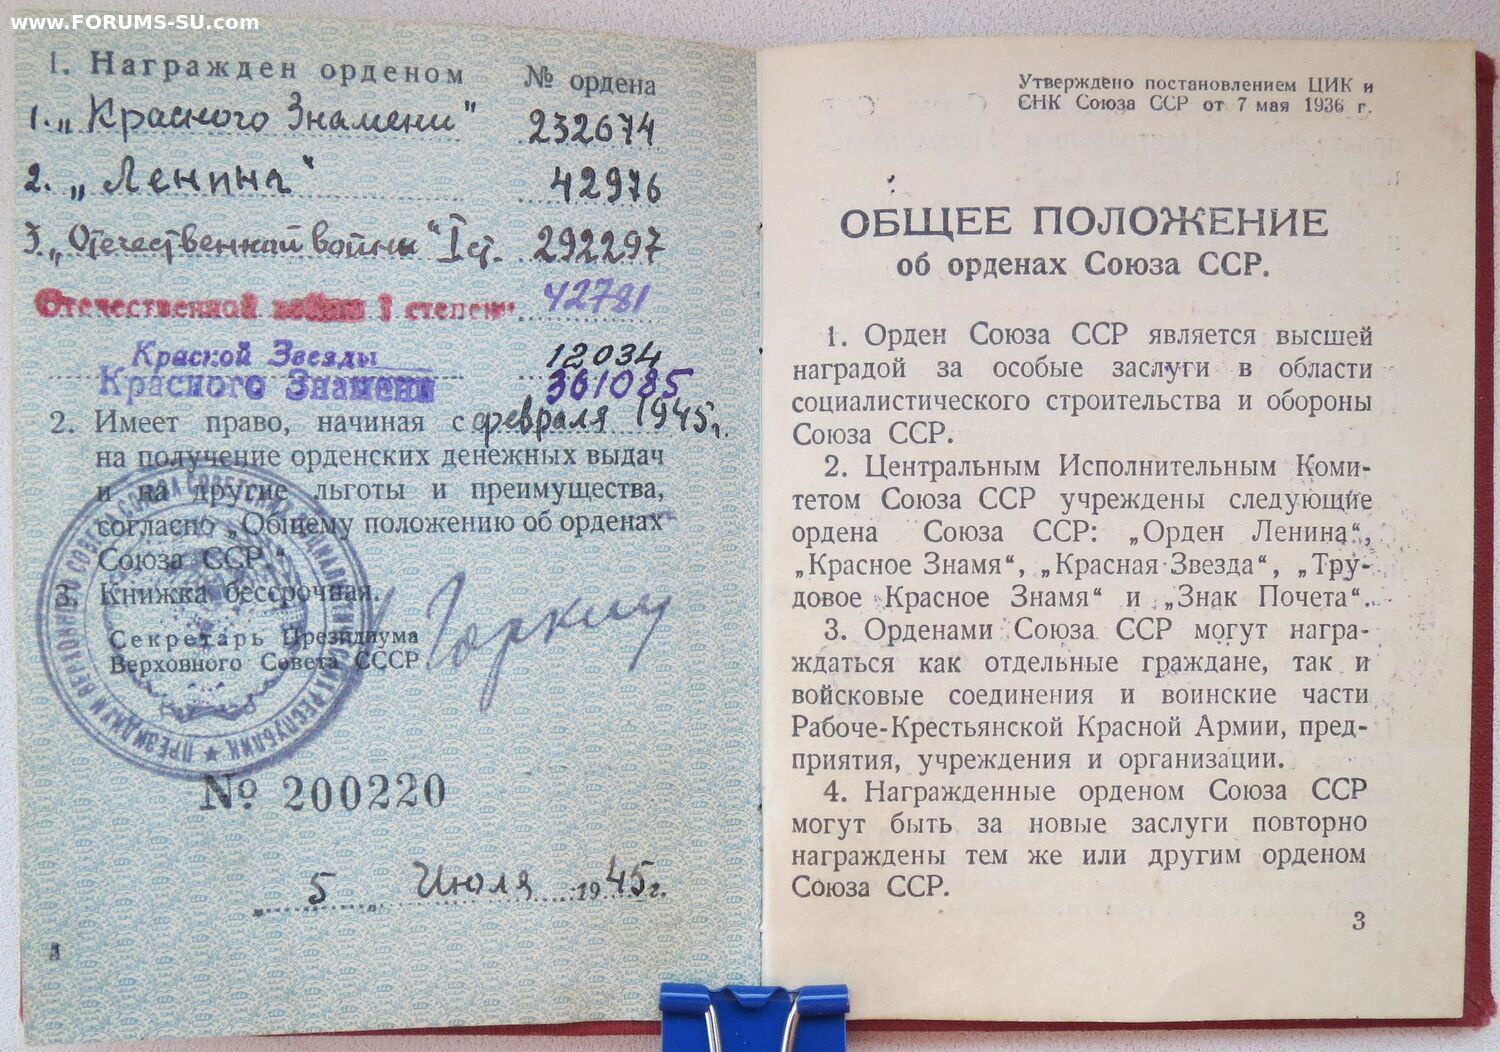 www.FORUMS-SU.com
1. Награжден орденом № ордена
1. „Красного Знамени" 232674
2. „Ленина" 42976
3. „Отечественной войны" I ст. 292297
Отечественной войны I степени 42781
Красной Звезды 12034
Красного Знамени 361085
2. Имеет право, начиная с февраля 1945г.
на получение орденских денежных выдач
и на другие льготы и преимущества,
согласно „Общему положению об орденах
Союза ССР."
3. Книжка бессрочная.
Секретарь Президиума
Верховного Совета СССР Горкин
ПРЕЗИДИУМ ВЕРХОВНОГО СОВЕТА СОЮЗА СОВЕТСКИХ СОЦИАЛИСТИЧЕСКИХ РЕСПУБЛИК
№ 200220
5 Июля 1945г.
Утверждено постановлением ЦИК и
СНК Союза ССР от 7 мая 1936 г.
ОБЩЕЕ ПОЛОЖЕНИЕ
об орденах Союза ССР.
1. Орден Союза ССР является высшей
наградой за особые заслуги в области
социалистического строительства и обороны
Союза ССР.
2. Центральным Исполнительным Коми-
тетом Союза ССР учреждены следующие
ордена Союза ССР: „Орден Ленина“,
„Красное Знамя“, „Красная Звезда“, „Тру-
довое Красное Знамя“ и „Знак Почета“.
3. Орденами Союза ССР могут награ-
ждаться как отдельные граждане, так и
войсковые соединения и воинские части
Рабоче-Крестьянской Красной Армии, пред-
приятия, учреждения и организации.
4. Награжденные орденом Союза ССР
могут быть за новые заслуги повторно
награждены тем же или другим орденом
Союза ССР.
3